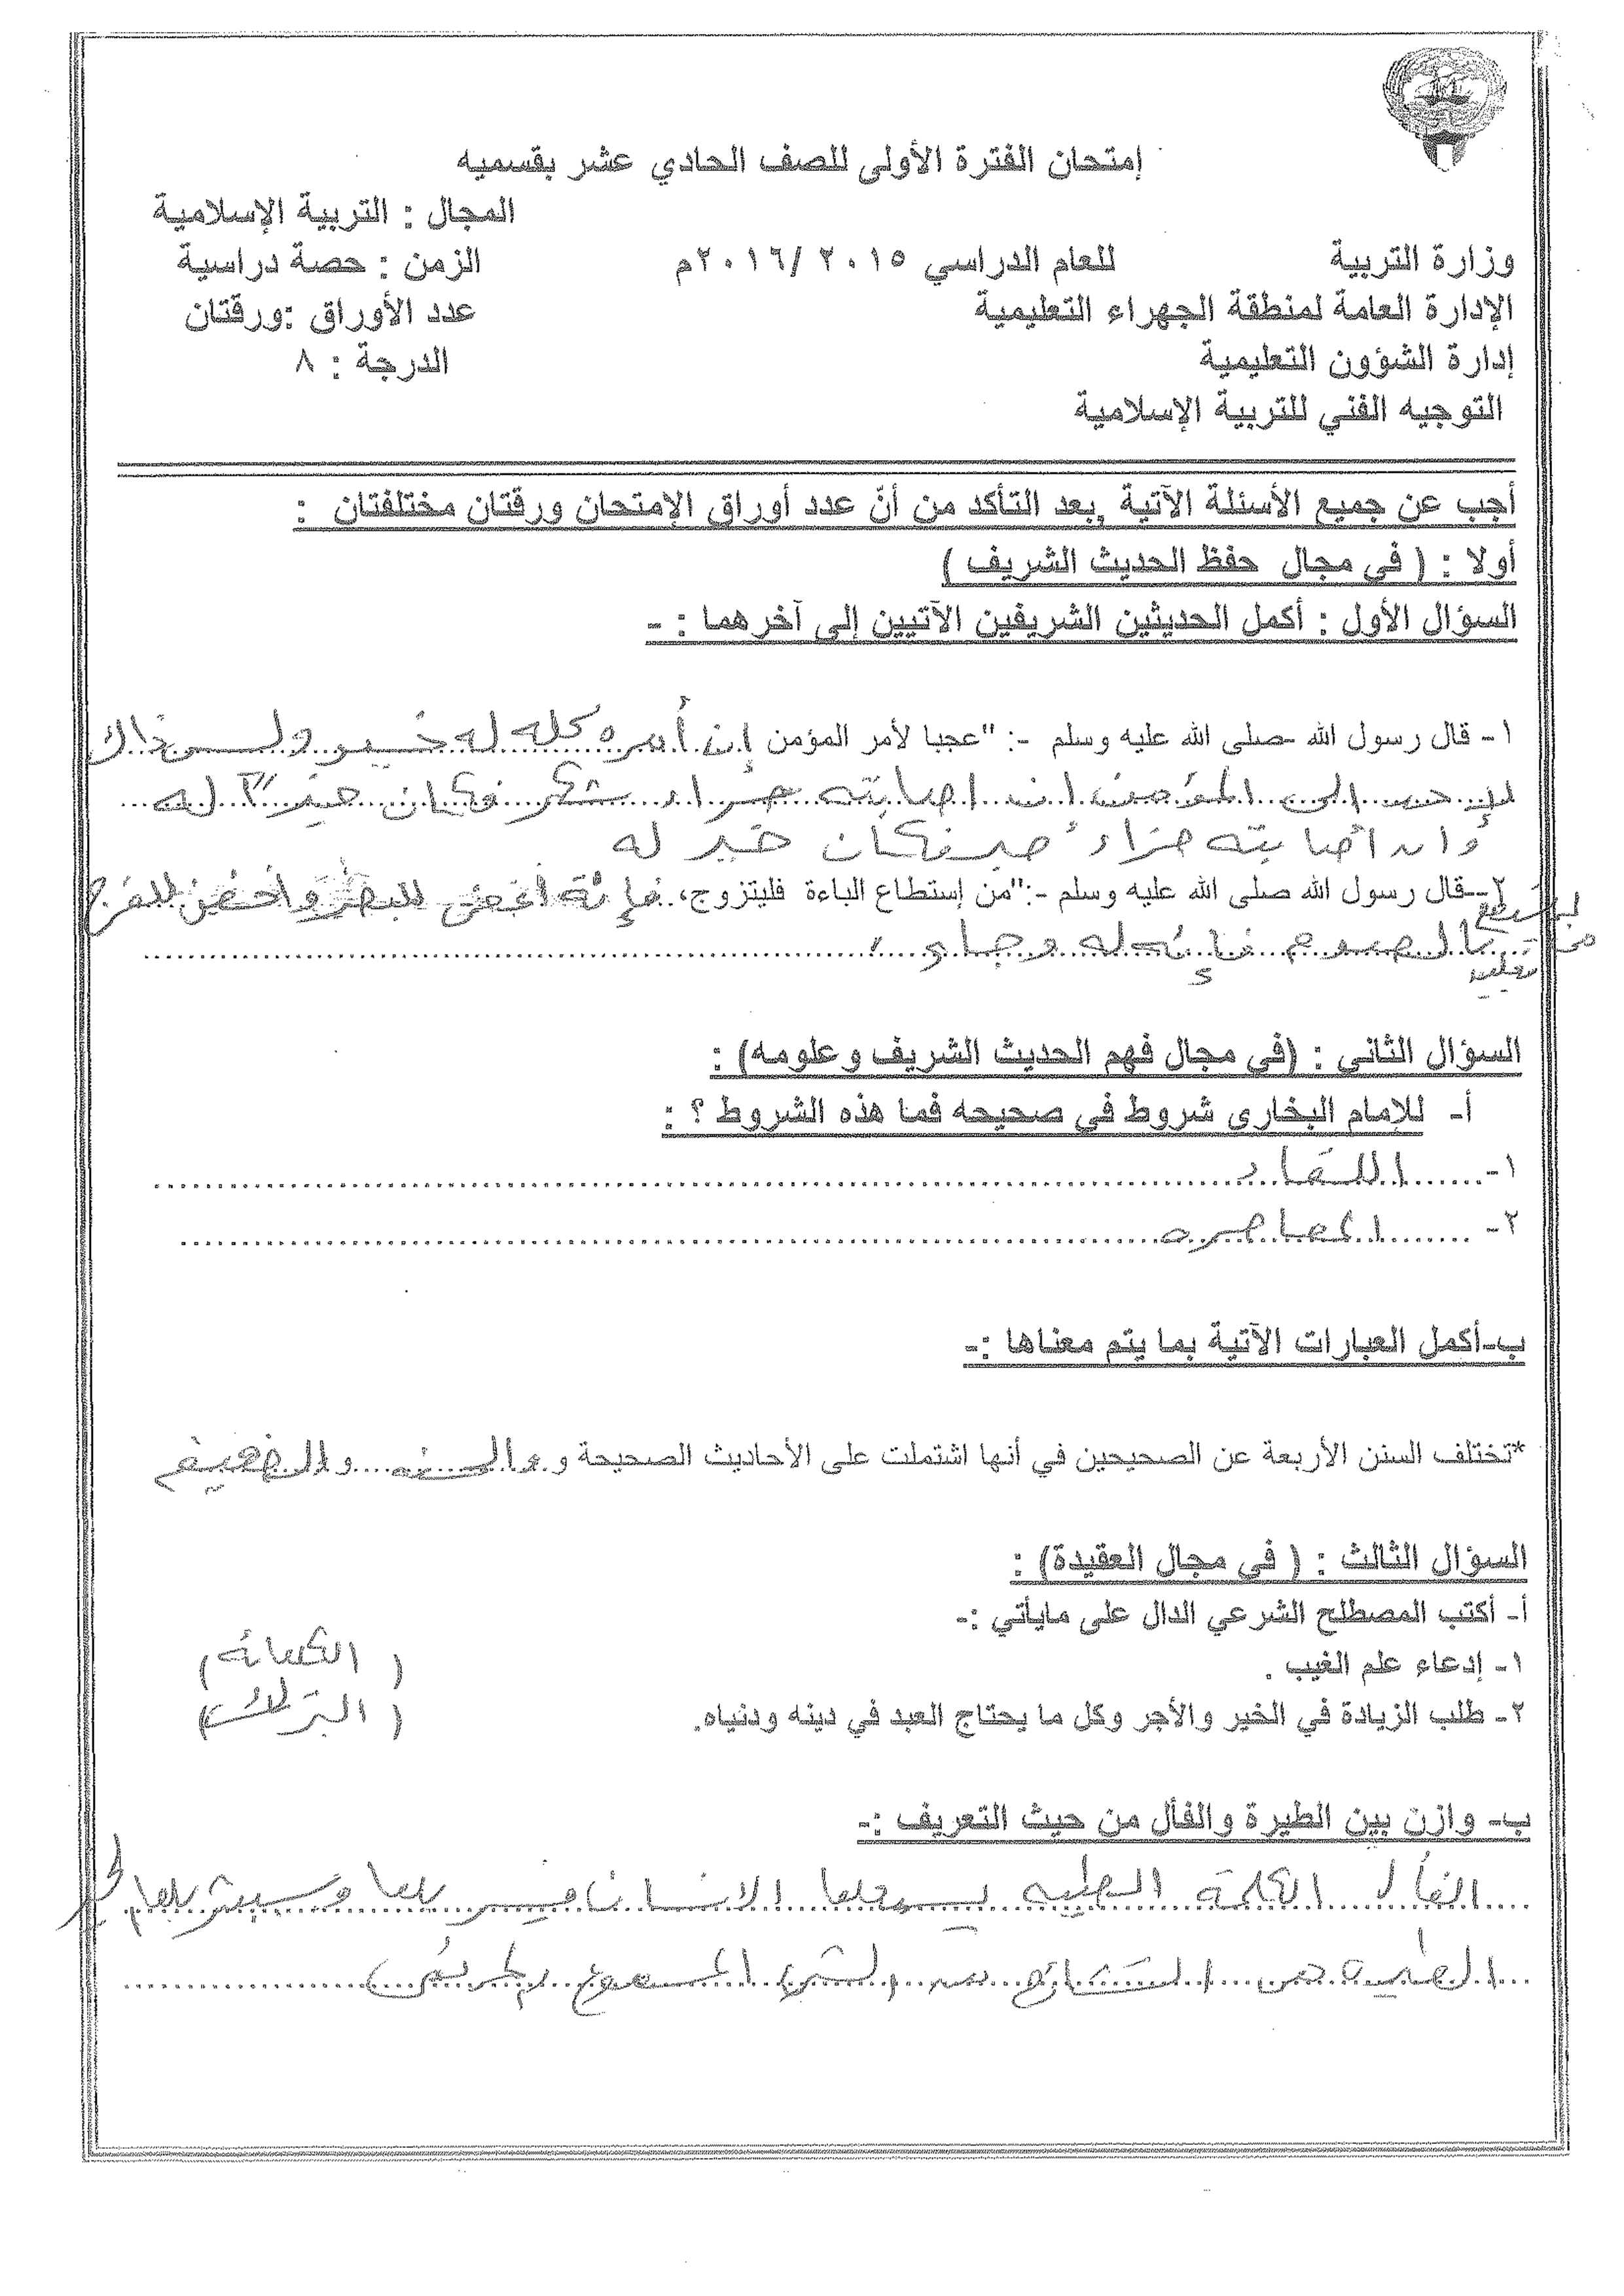 إمتحان الفترة الأولى للصف الحادي عشر بقسميه
المجال : التربية الإسلامية
وزارة التربية للعام الدراسي ٢٠١٥ /٢٠١٦م الزمن : حصة دراسية
الإدارة العامة لمنطقة الجهراء التعليمية عدد الأوراق :ورقتان
إدارة الشؤون التعليمية الدرجة : ٨
التوجيه الفني للتربية الإسلامية
أجب عن جميع الأسئلة الآتية ,بعد التأكد من أنّ عدد أوراق الإمتحان ورقتان مختلفتان :
أولا : ( في مجال حفظ الحديث الشريف )
السؤال الأول : أكمل الحديثين الشريفين الآتيين إلى آخرهما : -
١- قال رسول الله -صلى الله عليه وسلم -: "عجبا لأمر المؤمن إن أمره كله له خير وليس ذاك
إلى المؤمن ان اصابته سراء شكر فكان خيراً له
وان أصابته ضراء صبر فكان خير له
٢--قال رسول الله صلى الله عليه وسلم -:"من إستطاع الباءة فليتزوج، فإنه اغض للبصر واحصن للفرج
لم يستطع
بالصوم فإنه له وجاء"
السؤال الثاني : (في مجال فهم الحديث الشريف وعلومه) :
أ- للإمام البخارى شروط في صحيحه فما هذه الشروط ؟ :
١- اللقاء
٢- المعاصره
ب-أكمل العبارات الآتية بما يتم معناها :-
*تختلف السنن الأربعة عن الصحيحين في أنها اشتملت على الأحاديث الصحيحة و والحسنه و والضعيفه
السؤال الثالث : ( في مجال العقيدة) :
أ- أكتب المصطلح الشرعي الدال على مايأتي :-
١- إدعاء علم الغيب . ( الكهانه )
٢- طلب الزيادة في الخير والأجر وكل ما يحتاج العبد في دينه ودنياه. ( التبرك )
ب- وازن بين الطيرة والفأل من حيث التعريف :-
الفأل الكلمة الطيبه يسمعها الانسان فيسر بها
الطيره هي التشاؤم من الشئ المسموع